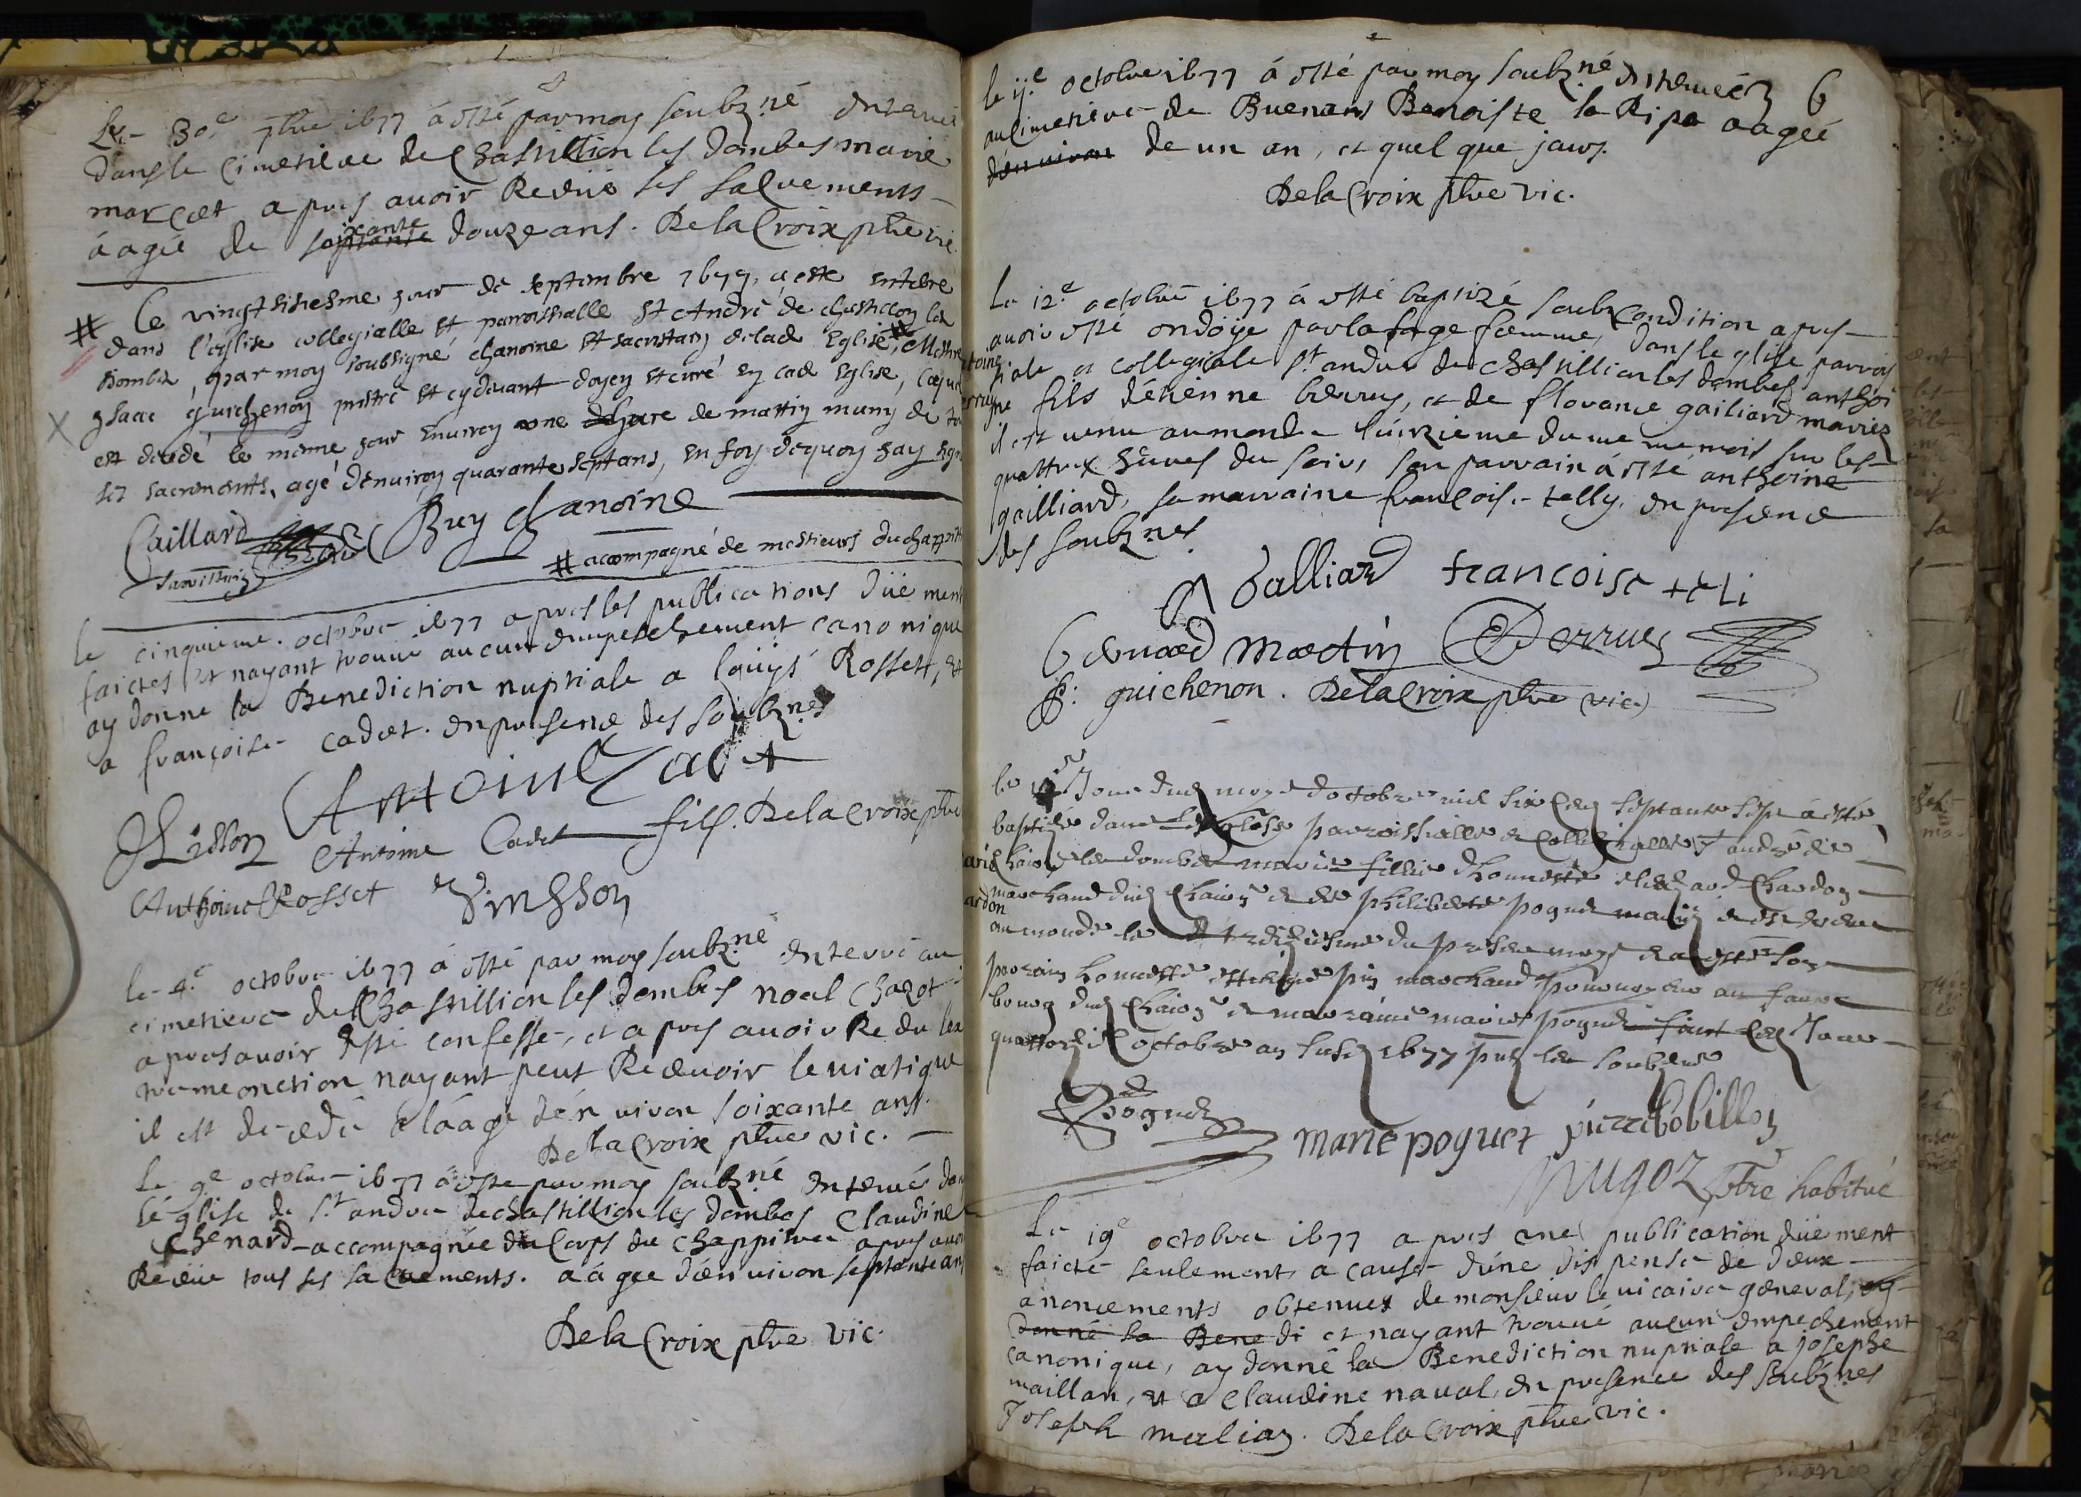 Le 30e 7bre 1677 á esté par moy soubzné enterré
dans le Cimetiere de Chastillion les dombes marie
marcet apres avoir Receüe ses sacrements
áagée de soixante douze ans. DelaCroix pbre vic.
Le vingt sixiesme jour de septembre 1677, a esté entéré
dans l'eglise collegialle et parroissialle St André de chastillon les
Dombes, par moy soubsigné chanoine et sacristain de lad Eglise, # Messire
ysaac guichenon prestre et cydevant doyen et curé en cad Eglise, Lequel
est decedé le même jour environ une heure de mattin muny de tous
ses sacrements, agé d'environ quarante septans, en foy dequoy jay signé
Caillard
Brey chanoine
# acompagné de messieurs du chappitre
le cinquieme octobre 1677 apres les publications düement
faictes et nayant trouué aucun empeschement canonique
ay donne la Benediction nuptiale a loüys Rosset, et
a françoise cadet. en presence des soubznes
Antoine Cadet
Antoine Cadet fils. DelaCroix pbre
Anthoine Rosset
le 4e octobre 1677 á esté par moy soubzné enterré au
cimetiere de Chastillion les dombes noel Chazot
apres avoir esté confessé, et apres avoir Receu lex
treme onction nayant peut Recevoir le viatique
il est decedé a láage d'énviron soixante ans.
DelaCroix pbre vic.
Le 9e octobre 1677 á esté par moy soubzné enterrés dans
lé glise de St andre de chastillion les dombes Claudine
Chenard accompagnée du Corps du Chappitre apres avoir
Receüe tous ses sacrements. aágée d'énviron septante ans
DelaCroix pbre vic.
6
le 11e octobre 1677 á esté par moy soubzné enterrée
au Cimetiere de Buenans Benoiste la Ripe aagée
d'énviron de un an, et quelque jours.
DelaCroix pbre vic.
Le 12e octobre 1677 á esté baptizé soubz condition apres
avoir esté ondoÿe par la sage foemme, dans le glise parrois
siale et collegiale St andre de chastillion les dombes anthoi
ne fils d'étienne berruy, et de florance gailiard mariez
il est venu au monde lúnzieme du me me mois sur les
quattrex heures du soir, son parrain á esté anthoine
gailliard, sa marraine françoise telly. en presence
des soubznes
A Galliard francoise teli
benoaed Martin
P: guichenon. DelaCroix pbre vic.
le Jour du moys doctobre mil six cens septante sept á esté
baptizée dans lesglise parroissialle et Collegialle St andré de
Chaon les dombes marie fillie dhonneste Chardon
marchand dud Chaon et de philiberte poguet mariez et est venue
au monde le treiziesme du presen moys et a esté son
parrain honneste pin marchand au faux
bourg dud Chaon et marraine marie poguet fait ce Jour
quattorze octobre an susd 1677 les soubznes
poguet
marie poguet pierre bobillon
pbre habitué
Le 19e octobre 1677 apres une publication düement
faicte seulement a cause d'úne dispense de deux
anoncements obtenues de monsieur le vicaire general, ay
donné la Bene di et nayant trouué aucun empechement
canonique, ay donné la Benediction nuptiale a josephe
maillan, et a Claudine naual, en presence des soubznes
Joseph malian. DelaCroix pbre vic.